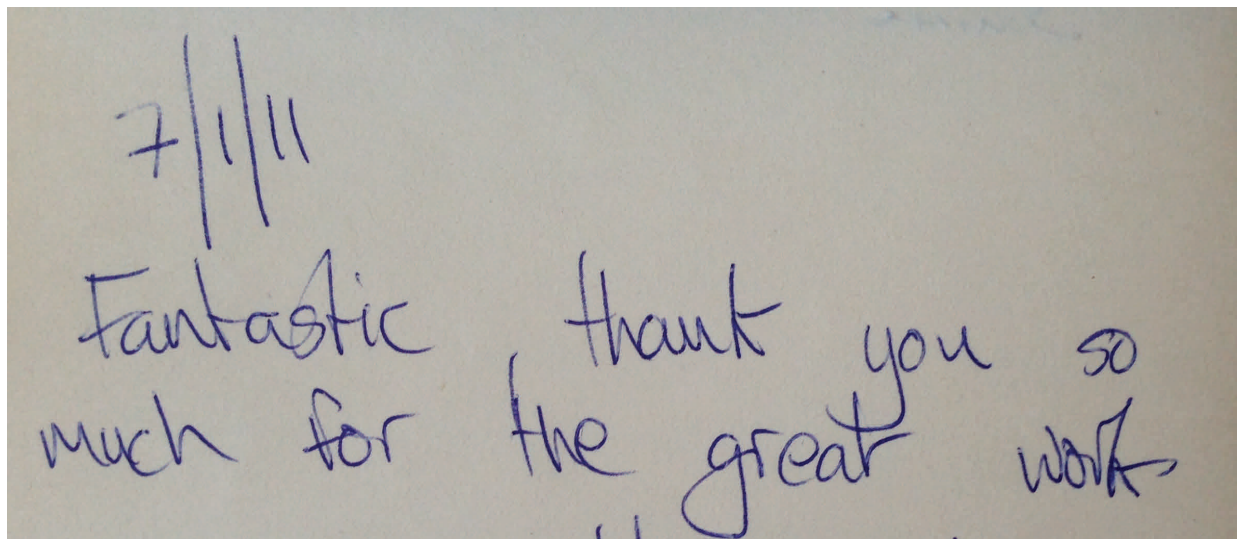 7/1/11
Fantastic, thank you so
much for the great work